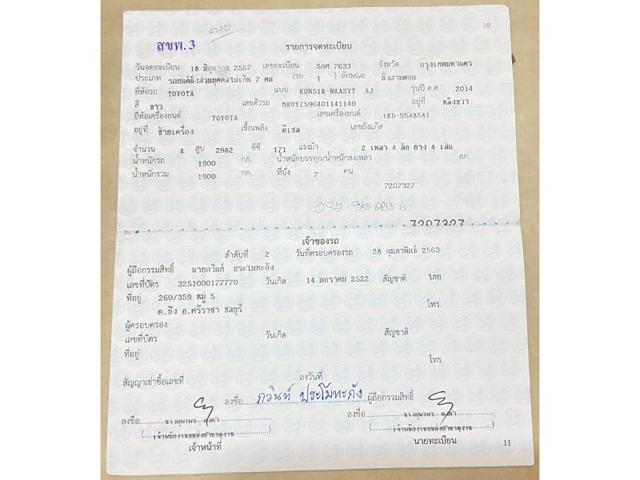 10
สขพ. 3
รายการจดทะเบียน
วันจดทะเบียน 18 มิถุนายน 2557 เลขทะเบียน 5กศ 7633 จังหวัด กรุงเทพมหานคร
ประเภท รถยนต์นั่งส่วนบุคคลไม่เกิน 7 คน (รย. 1 ) ลักษณะ นั่งสามตอน
ยี่ห้อรถ TOYOTA แบบ KUN51R-NKASYT AJ รุ่นปี ค.ศ. 2014
สี ขาว เลขตัวรถ MR0YZ59G401141140 อยู่ที่ หลังขวา
ยี่ห้อเครื่องยนต์ TOYOTA เลขเครื่องยนต์ 1KD-U548541
อยู่ที่ ซ้ายเครื่อง เชื้อเพลิง ดีเซล เลขถังแก๊ส
จำนวน 4 สูบ 2982 ซีซี 171 แรงม้า 2 เพลา 4 ล้อ ยาง 4 เส้น
น้ำหนักรถ 1900 กก. น้ำหนักบรรทุก/น้ำหนักลงเพลา กก.
น้ำหนักรวม 1900 กก. ที่นั่ง 7 คน
7207327
7207327
เจ้าของรถ
ลำดับที่ 2 วันที่ครอบครองรถ 28 กุมภาพันธ์ 2563
ผู้ถือกรรมสิทธิ์ นายภวินท์ ประโมทะกัง
เลขที่บัตร 3251000177770 วันเกิด 14 มกราคม 2522 สัญชาติ ไทย
ที่อยู่ 260/359 หมู่ 5 โทร.
ต.บึง อ.ศรีราชา ชลบุรี
ผู้ครอบครอง
เลขที่บัตร วันเกิด สัญชาติ
ที่อยู่ โทร.
สัญญาเช่าซื้อเลขที่ ลงวันที่
ลงชื่อ ภวินท์ ประโมทะกัง ผู้ถือกรรมสิทธิ์
ลงชื่อ ลงชื่อ
เจ้าหน้าที่ นายทะเบียน
11